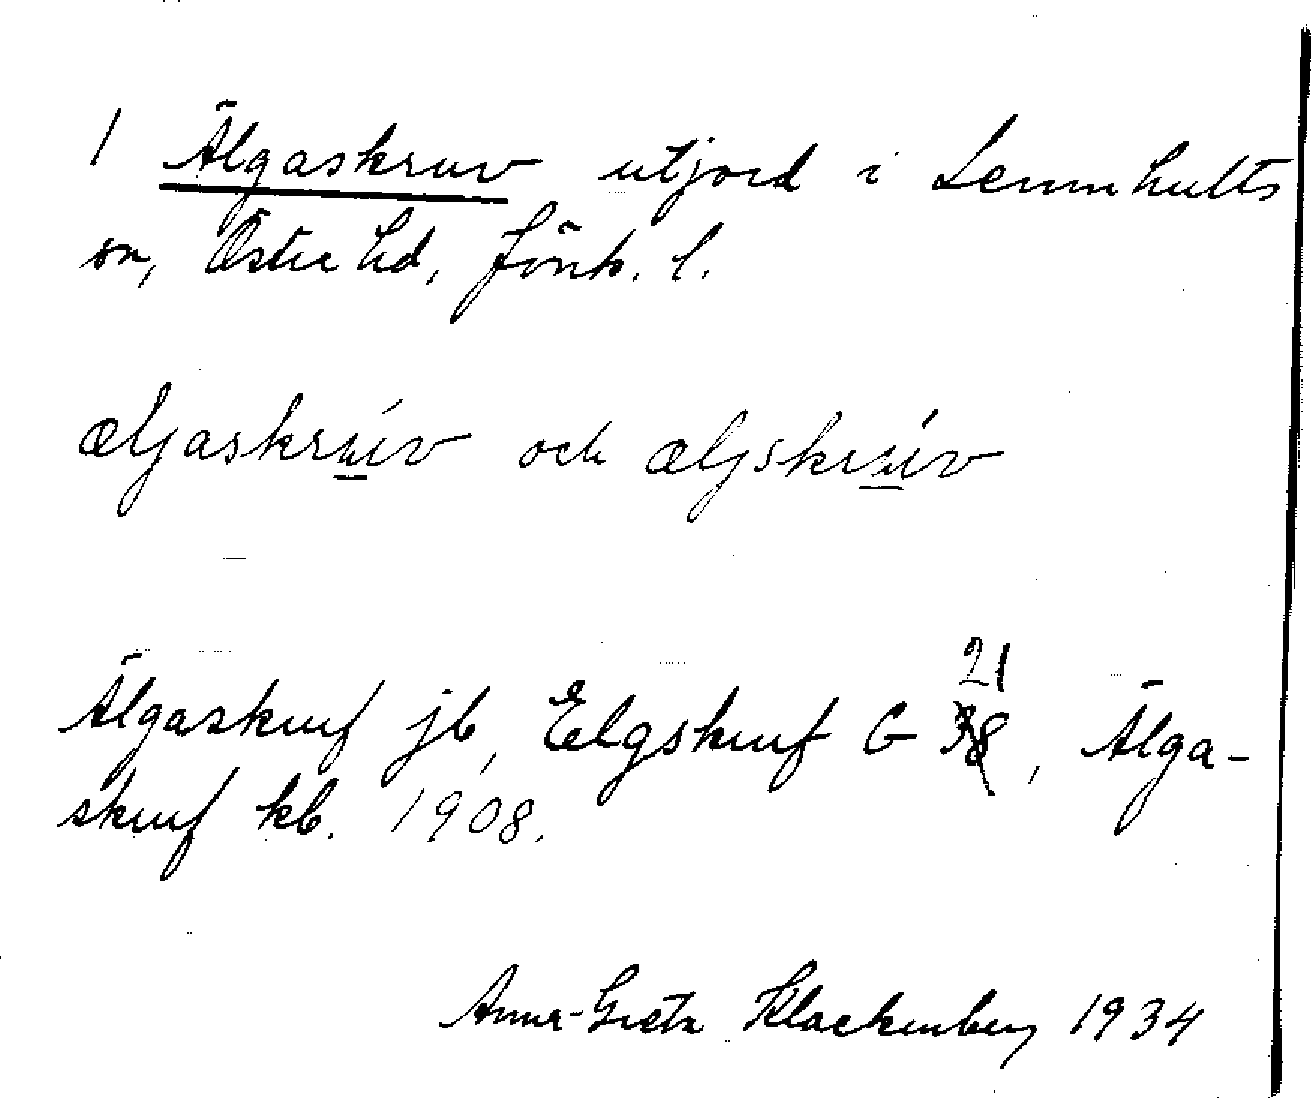 1 Älgaskruv utjord i Lemnhults
sn, Östra hd, Jönk. l.
æljaskrúv och æljskrúv
Älgaskruf jb, Elgskruf G 21, Älga-
skruf kb. 1908.
Anna-Greta Klackenberg 1934